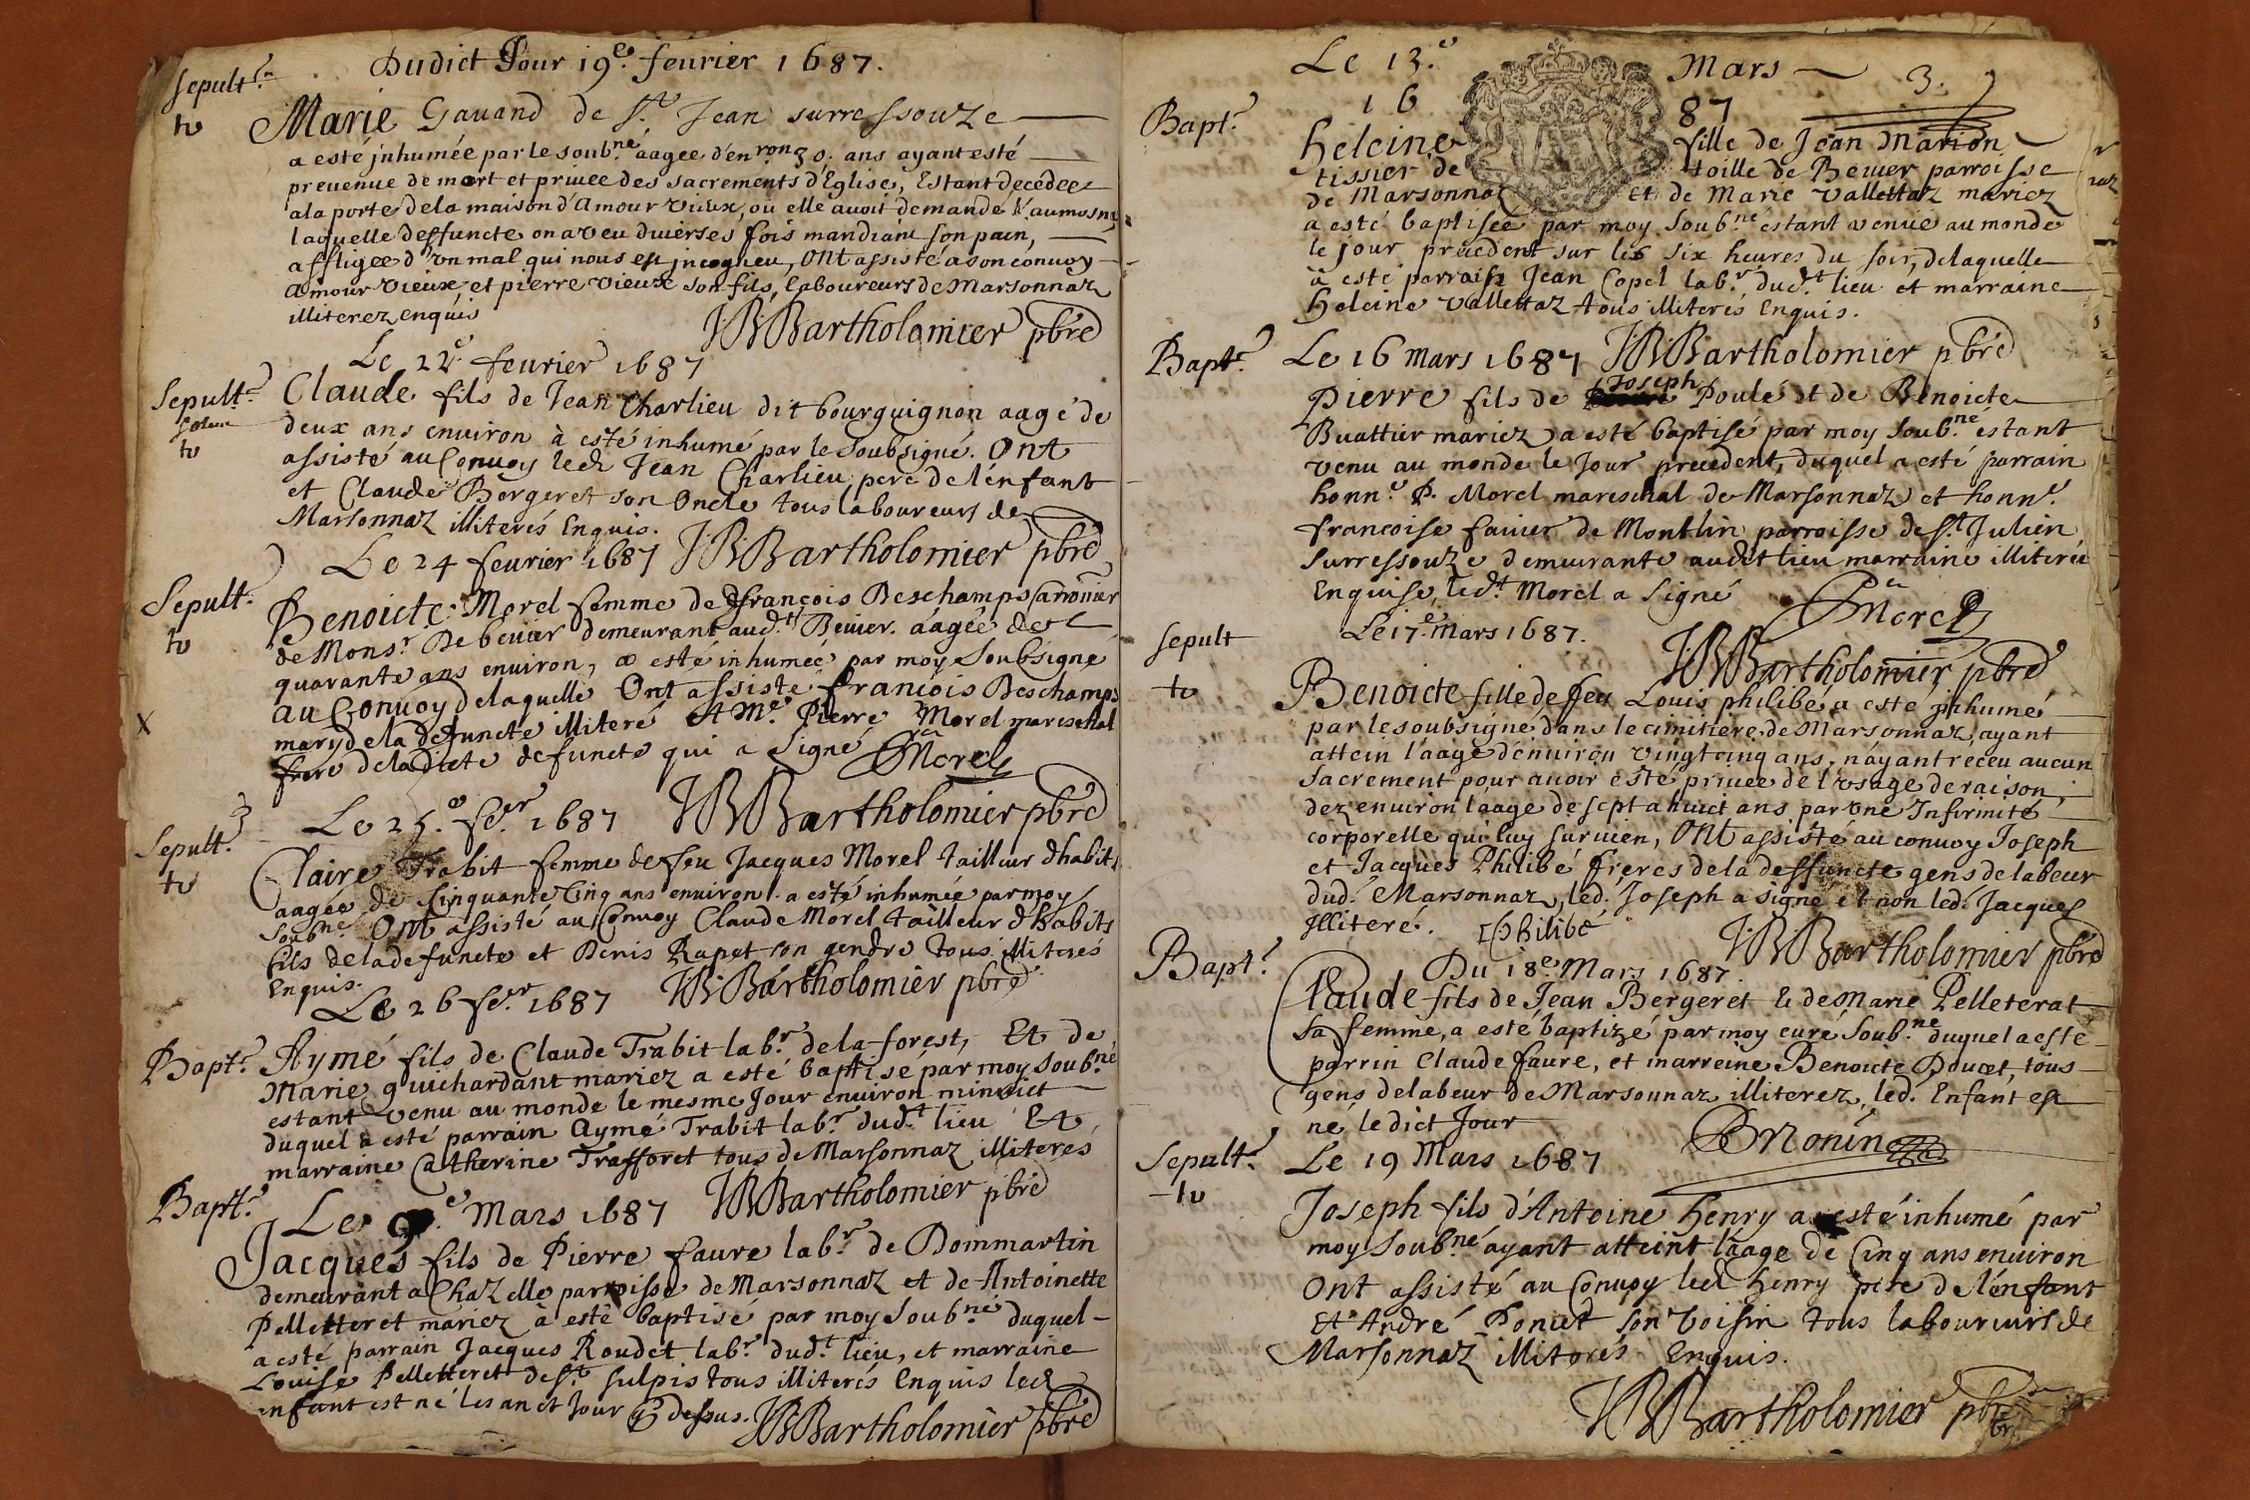 Sepult.re
tv
Dudict Jour 19.e feurier 1687.
Marie Gauand de S.t Jean surressouze
a esté jnhumée par le soub.né aagee d'enron 30. ans ayant esté
preuenue de mort et priuee des sacrements d'Eglise, Estant decedee
a la porte de la maison d'Amour vieux, ou elle auoit demandé l'aumosne
laquelle deffuncte on a veu diuerses fois mandiant son pain,
affligee d'vn mal qui nous est jncogneu, Ont assisté a son conuoy
Amour vieux, et pierre vieux son fils, laboureurs de Marsonnaz
illiterez enquis
JBBartholomier pbre
Le 22.e feurier 1687
Sepult.re
tv
Claude fils de Jean Charlieu dit bourguignon aagé de
deux ans enuiron à esté inhumé par le soubsigné. Ont
assisté au Conuoy led. Jean Charlieu pere de l'enfant
et Claude Bergeret son Oncle tous laboureurs de
Marsonnaz illiterés Enquis.
JBBartholomier pbre
Le 24 feurier 1687
Sepult.
tv
Benoicte Morel femme de françois Deschamps
de Mons.r De beuier demeurant aud.t Beuier. aagée de
quarante ans enuiron, a esté inhumée par moy soubsigné
au Conuoy de laquelle Ont assisté françois Deschamps
X
mary de la defuncte illiteré et M.e Pierre Morel mareschal
frere de la dicte defuncte qui a signé
Morel
JBBartholomier pbre
Le 25.e fe.er 1687
Sepult.
tv
Claire Trabit femme de feu Jacques Morel tailleur d'habits
aagée de Cinquante Cinq ans enuiron a esté inhumée par moy
Soub.né Ont assisté au Conuoy Claude Morel tailleur d'habits
fils de la defuncte et Denis Rapet son gendre tous illiterés
Enquis.
JBBartholomier pbre
Le 26 fe.er 1687
Bapt.e
Aymé fils de Claude Trabit lab.r de la forest, Et de
Marie guichardant mariez a esté baptisé par moy soub.né
estant venu au monde le mesme Jour enuiron minuict
duquel a esté parrain Aymé Trabit lab.r dud.t lieu Et
marraine Catherine Trafforet tous de Marsonnaz illiterés
JBBartholomier pbre
Bapt.e
Le 9.e Mars 1687
Jacques fils de Pierre faure lab.r de Dommartin
demeurant a Chazelle parroisse de Marsonnaz et de Antoinette
Pelletteret mariez à esté baptisé par moy soub.né duquel
a esté parrain Jacques Roudet lab.r dud.t lieu, et marraine
Louise Pelletteret de S.t sulpis tous illiterés Enquis led.
enfant est né les an et Jour Cy dessus.
JBBartholomier pbre
Le 13.e Mars 3.
16 87
Bapt.e
heleine fille de Jean Marion
tissier de toille de Beuier parroisse
de Marsonnaz et de Marie Vallettaz mariez
a esté baptisée par moy soub.né estant venüe au monde
le jour precedent sur les six heures du soir, de laquelle
à esté parrain Jean Copel lab.r dud.t lieu et marraine
heleine vallettaz tous illiterés Enquis.
JBBartholomier pbre
Bapt.e
Le 16 Mars 1687
Joseph
Pierre fils de Poulé et de Benoicte
Buattier mariez a esté baptisé par moy soub.né estant
venu au monde le Jour precedent, duquel a esté parrain
honn.e P. Morel mareschal de Marsonnaz et honn.e
francoise fauier de Montlin parroisse de S.t Julien
surressouze demeurante audit lieu marraine illiterée
Enquise, led.t Morel a signé
Morel
JBBartholomier pbre
Le 17.e Mars 1687.
Sepult
tv
Benoicte fille de feu Louis philibé a esté jnhumé
par le soubsigné dans le cimitiere de Marsonnaz, ayant
attein l'aage d'enuiron vingt cinq ans, n'ayant receu aucun
sacrement pour auoir esté priuée de l'vsage de raison
dez enuiron l'aage de sept a huict ans par vne Infirmité
corporelle qui luy suruien, Ont assisté au conuoy Joseph
et Jacques Philibé freres de la deffuncte gens de labeur
dud. Marsonnaz, led. Joseph a signé et non led. Jacques
Jlliteré.
Philibé
JBBartholomier pbre
Bapt.e
Du 18.e Mars 1687
Claude fils de Jean Bergeret & de Marie Pelleterat
sa femme, a esté baptizé par moy curé soub.né duquel a esté
parrin Claude faure, et marreine Benoicte Ducet, tous
gens de labeur de Marsonnaz illiterez, led. Enfant est
né le dict Jour
Sepult.e
tv
Le 19 Mars 1687
Joseph fils d'Antoine henry a esté inhumé par
moy soub.né ayant atteint l'aage de Cinq ans enuiron
Ont assisté au Conuoy led. henry pere de l'enfant
Et André Poncet son voisin tous laboureurs de
Marsonnaz illiterés Enquis.
JBBartholomier pbre